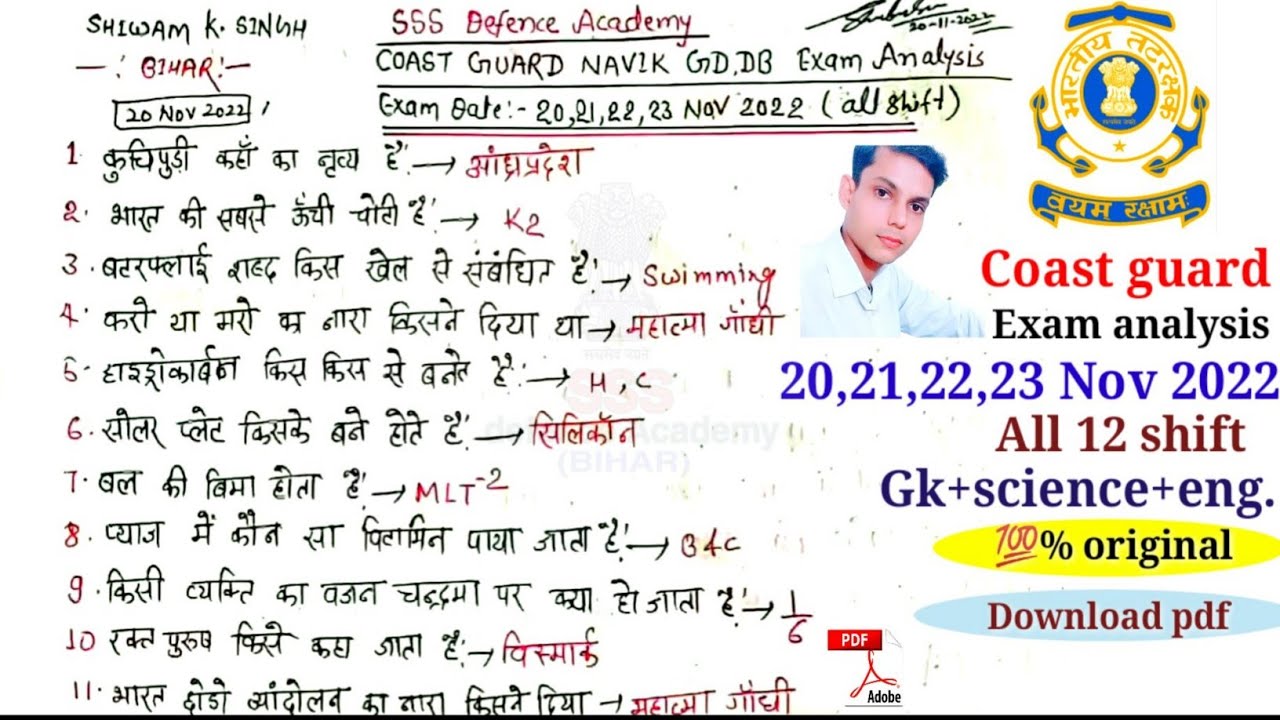 SHIWAM K. SINGH
—: BIHAR:—
20 Nov 2022
SSS Defence Academy
20-11-2022
COAST GUARD NAVIK GD,DB Exam Analysis
Exam Date:- 20,21,22,23 Nov 2022 (all shift)
1. कुचिपुड़ी कहाँ का नृत्य है → आंध्रप्रदेश
2. भारत की सबसे ऊँची चोटी है → K2
3. बटरफ्लाई शब्द किस खेल से संबंधित है → Swimming
4. करो या मरो का नारा किसने दिया था → महात्मा गाँधी
5. हाइड्रोकार्बन किस किस से बनते है → H, C
6. सोलर प्लेट किसके बने होते है → सिलिकॉन
7. बल की विमा होता है → MLT⁻²
8. प्याज में कौन सा विटामिन पाया जाता है →
9. किसी व्यक्ति का वजन चन्द्रमा पर क्या हो जाता है → 1/6
10 रक्त पुरुष किसे कहा जाता है → विस्मार्क
11. भारत छोडो आंदोलन का नारा किसने दिया → महात्मा गाँधी
भारतीय तटरक्षक
वयम रक्षामः
Coast guard
Exam analysis
20,21,22,23 Nov 2022
All 12 shift
Gk+science+eng.
💯% original
Download pdf
PDF
Adobe
सत्यमेव जयते
SSS
defence Academy
(BIHAR)